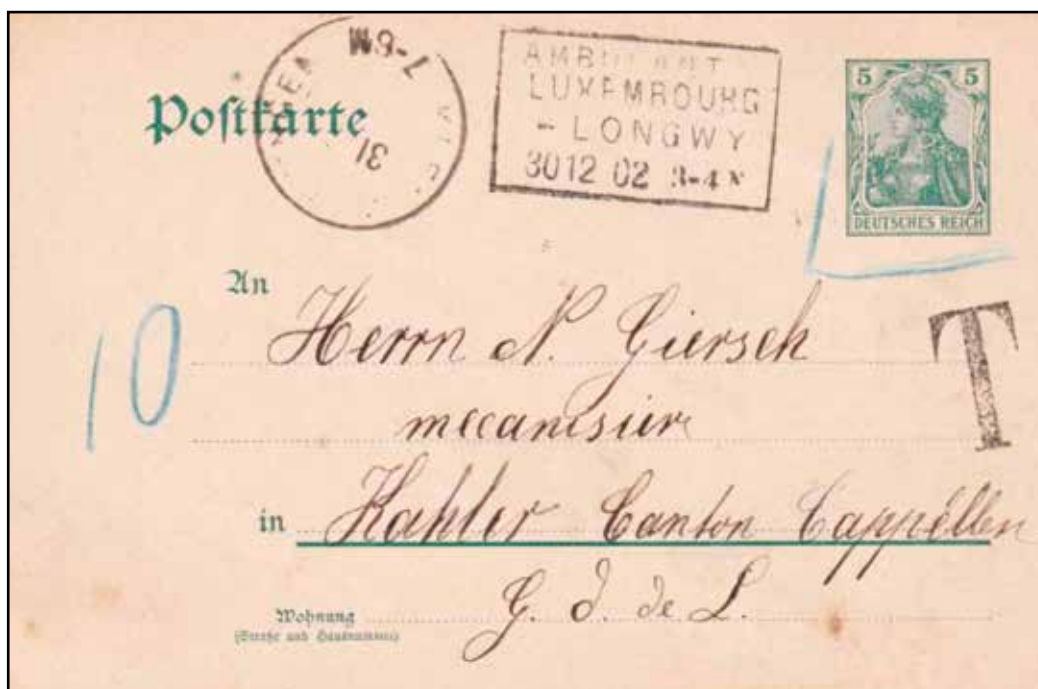 Postkarte
7-8M
31
AMBULANT
LUXEMBOURG
- LONGWY
30 12 02 3-4 N
5 5
DEUTSCHES REICH
An
Herrn N. Giersch
mecanisier
10
T
in Kahler Canton Cappellen
G. d. de L.
Wohnung
(Straße und Hausnummer)